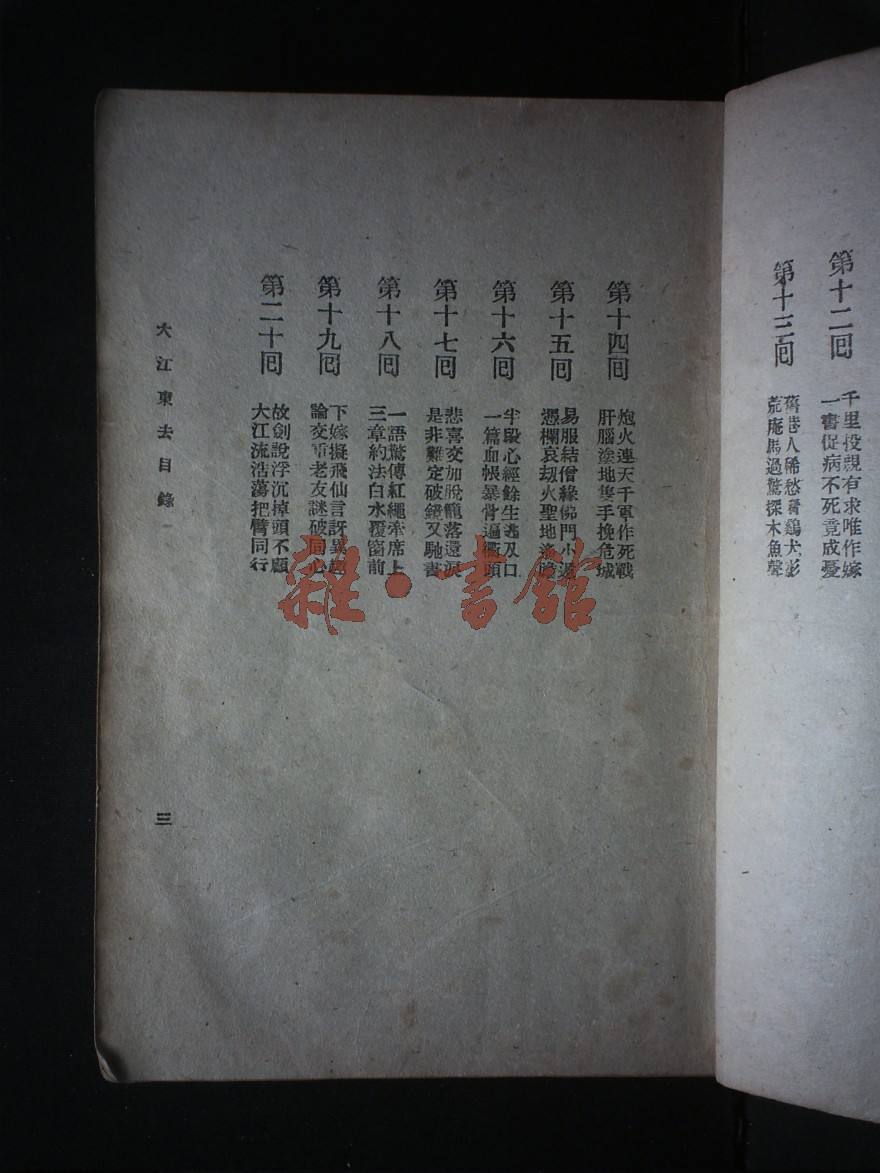 第十二回
千里投親有求唯作嫁
一書促病不死竟成憂
第十三回
舊巷人稀愁尋鷄犬影
荒庵馬過驚探木魚聲
第十四回
炮火連天千軍作死戰
肝腦塗地隻手挽危城
第十五回
易服結僧緣佛門小遁
憑欄哀劫火聖地
第十六回
半段心經餘生逃及口
一篇血帳暴骨遍衢頭
第十七回
悲喜交加脫籠落還淚
是非難定破鏡又馳書
第十八回
一語驚傳紅繩牽席上
三章約法白水覆窗前
第十九回
下嫁擬飛仙言訝異趣
論交重老友謎破同心
第二十回
故劍說浮沉掉頭不顧
大江流浩蕩把臂同行
大江東去目錄
三
雜·書館